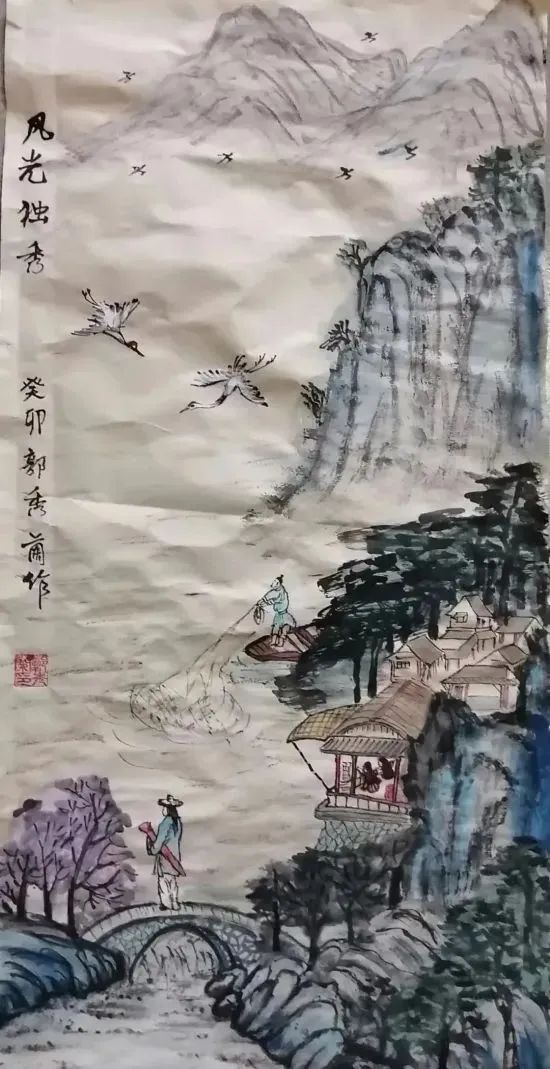 风光独秀
癸卯郭秀兰作